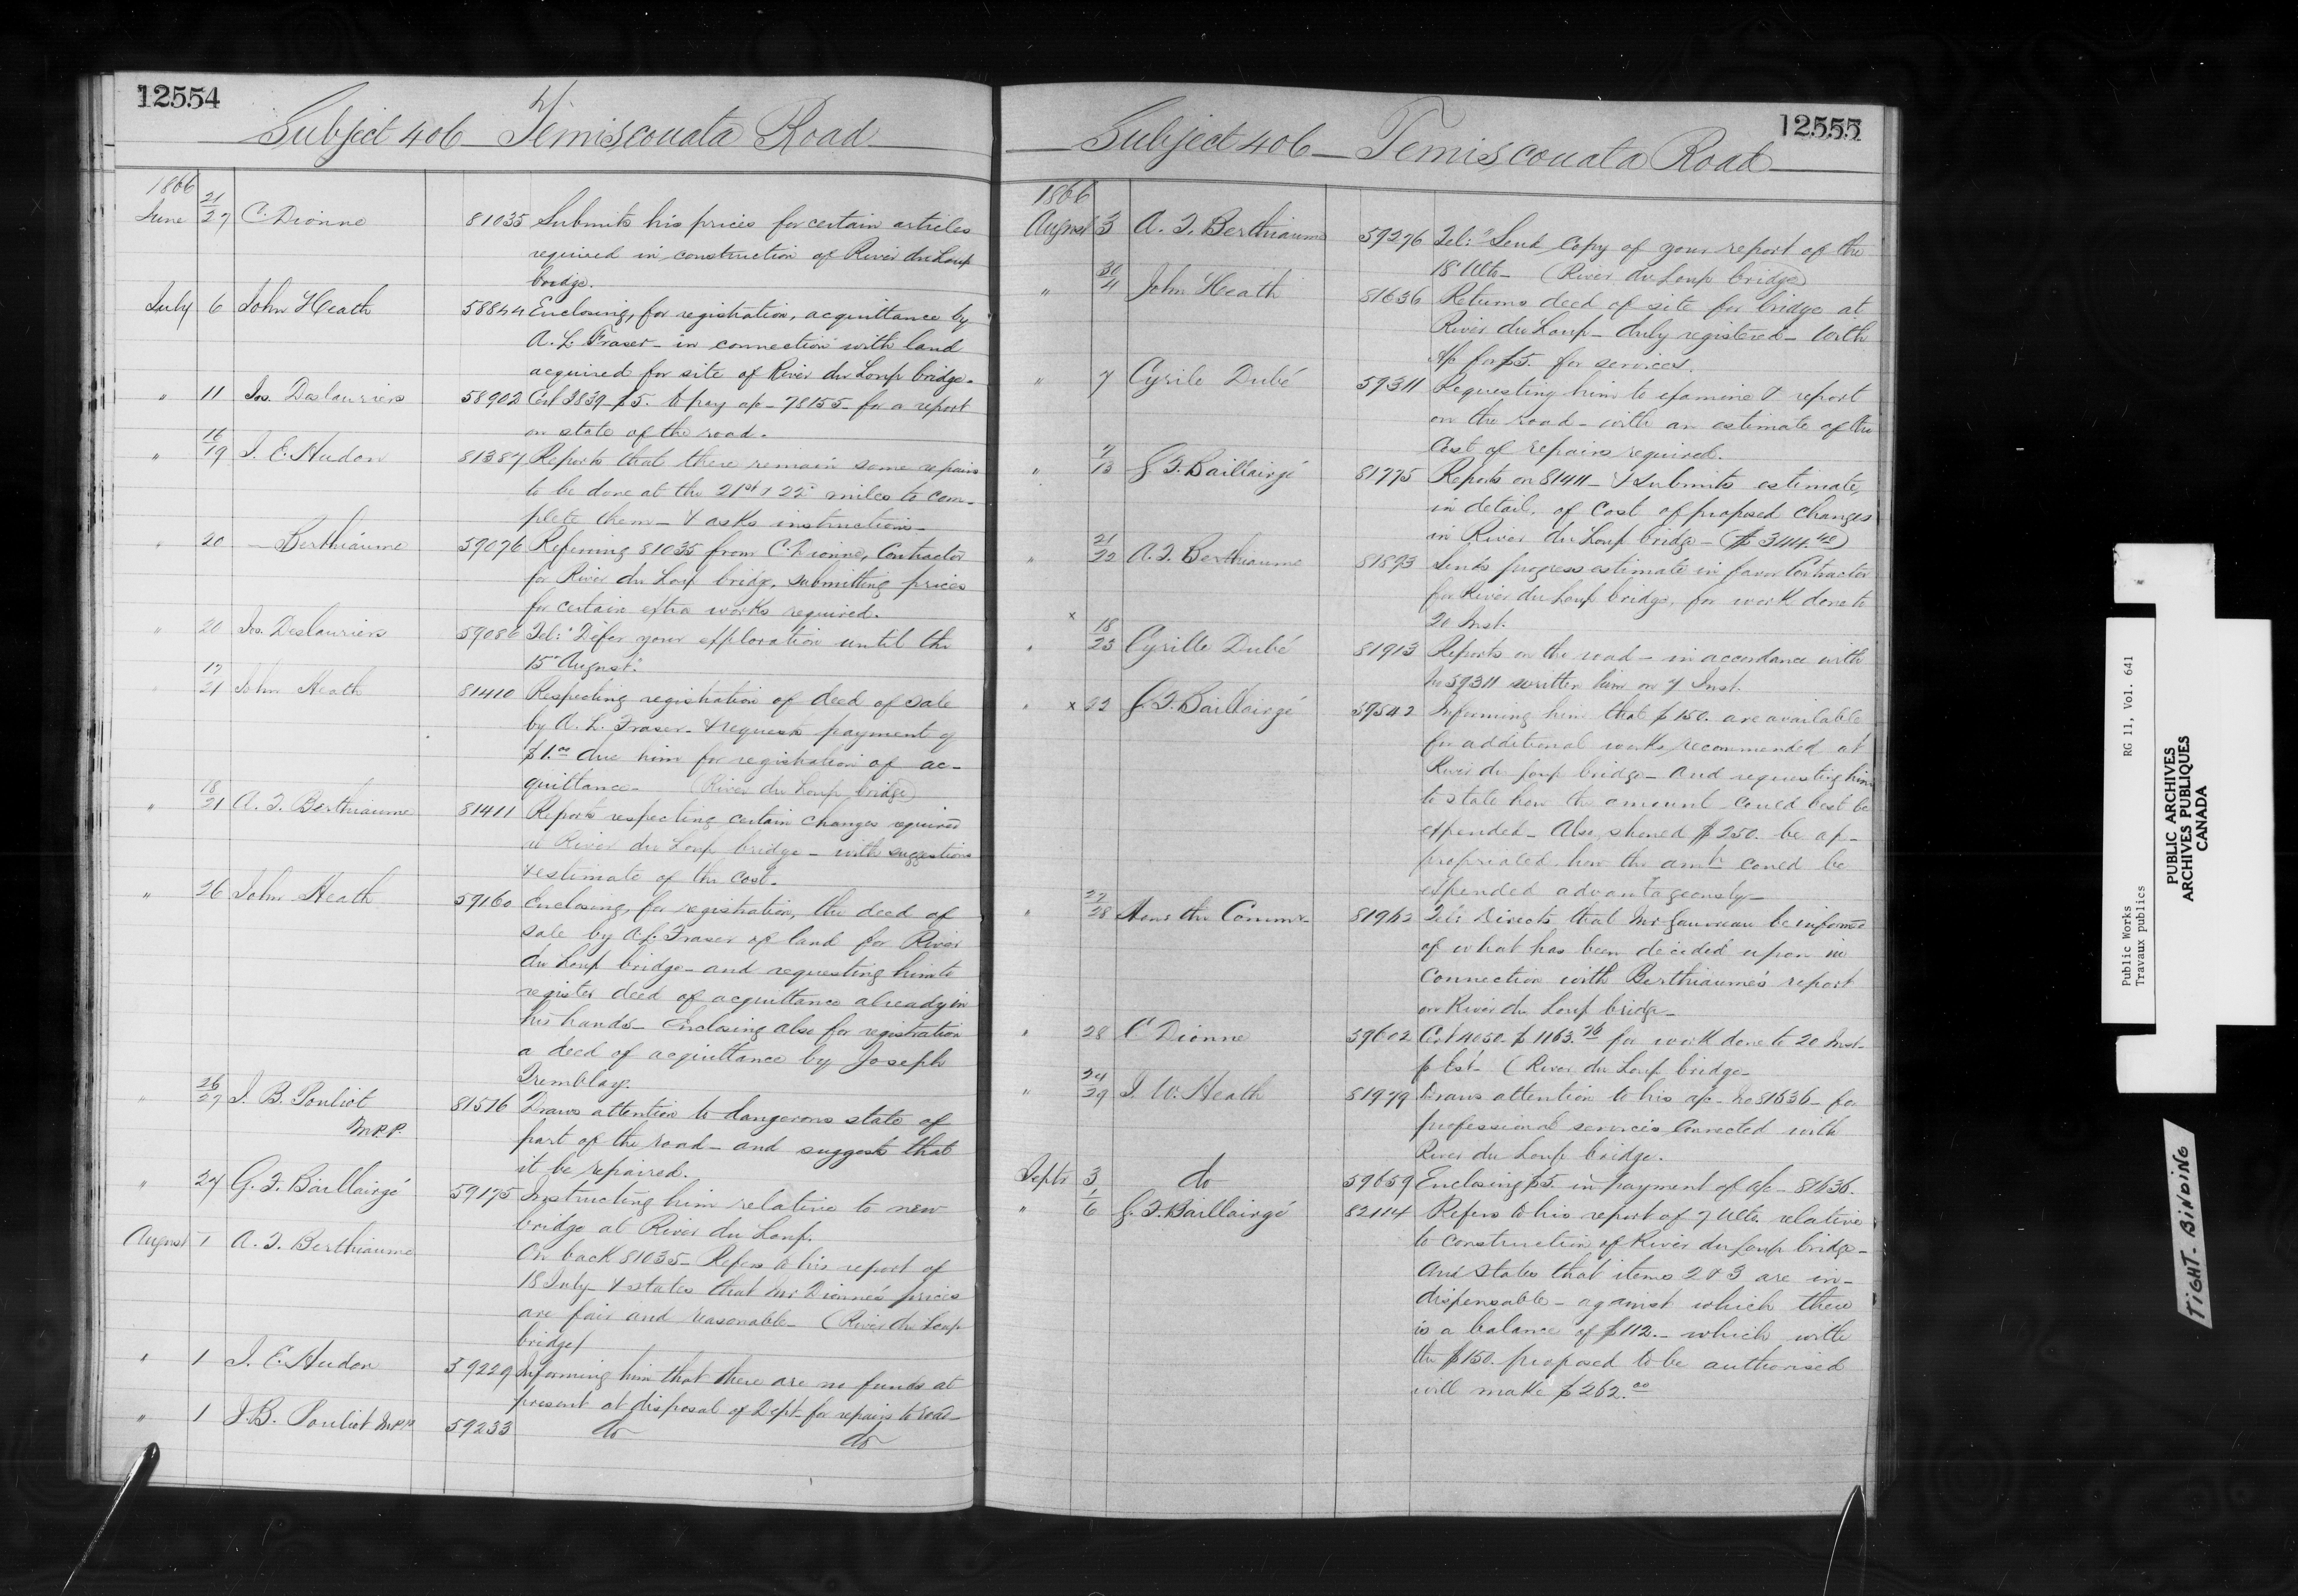 12554
Subject 406 - Temiscouata Road
1866
June 21/27 C. Dionne 81035 Submits his prices for certain articles
required in construction of River du Loup
bridge.
July 6 John Heath 58844 Enclosing, for registration, acquittance by
A. L. Fraser - in connection with land
acquired for site of River du Loup bridge.
" 11 Jos. Deslauriers 58902 Cert 3839 - $5. to pay a/c - 78155 - for a report
on state of the road.
" 16/19 J. E. Hudon 81387 Reports that there remain some repairs
to be done at the 21st & 22d miles to com-
plete them - & asks instructions -
" 20 — Berthiaume 59076 Referring 81035 from C. Dionne, Contractor
for River du Loup bridge, submitting prices
for certain extra works required.
" 20 Jos. Deslauriers 59086 Tel: "Defer your exploration until the
15th August."
" 17/21 John Heath 81410 Respecting registration of deed of sale
by A. L. Fraser - & requests payment of
$1.00 due him for registration of ac-
quittance - (River du Loup bridge)
" 18/21 A. F. Berthiaume 81411 Reports respecting certain changes required
in River du Loup bridge - with suggestions
& estimate of the cost.
" 26 John Heath 59160 Enclosing, for registration, the deed of
sale by A. L. Fraser of land for River
du Loup bridge - and requesting him to
register deed of acquittance already in
his hands - Enclosing also for registration
a deed of acquittance by Joseph
Tremblay.
" 26/27 J. B. Pouliot 81516 Draws attention to dangerous state of
M.P.P. part of the road - and suggests that
it be repaired.
" 27 G. F. Baillairgé 59175 Instructing him relative to new
bridge at River du Loup.
August 1 A. F. Berthiaume On back 81035 - Refers to his report of
18 July - & states that Mr Dionne's prices
are fair and reasonable - (River du Loup
bridge)
" 1 J. E. Hudon 59229 Informing him that there are no funds at
present at disposal of Dept. for repairs to road -
" 1 J. B. Pouliot M.P.P. 59233 do do
12555
Subject 406 - Temiscouata Road
1866
August 3 A. F. Berthiaume 59276 Tel: "Send Copy of your report of the
18 Ulto - (River du Loup bridge)
" 30/4 John Heath 81636 Returns deed of site for bridge at
River du Loup - duly registered - with
a/c for $5. for services.
" 7 Cyrile Dubé 59311 Requesting him to examine & report
on the road - with an estimate of the
Cost of repairs required.
" 7/13 G. F. Baillairgé 81775 Reports on 81411 - & submits estimate,
in detail, of Cost of proposed changes
in River du Loup bridge - ($344.40)
" 21/22 A. F. Berthiaume 81893 Sends progress estimate in favor Contractor
for River du Loup bridge, for work done to
20 Inst.
" x 18/23 Cyrille Dubé 81913 Reports on the road - in accordance with
No 59311 written him on 7 Inst.
" x 22 G. F. Baillairgé 59542 Informing him that $150. are available
for additional works, recommended at
River du Loup bridge - and requesting him
to state how the amount could best be
expended - Also, should $250. be ap-
propriated how the amt. could be
expended advantageously -
" 27/28 Hons the Commr. 81962 Tel: Directs that Mr Gauvreau be informed
of what has been decided upon in
Connection with Berthiaume's report
on River du Loup bridge -
" 28 C Dionne 59602 Cert 4050 - $1163.76 for work done to 20 Inst -
p Est. (River du Loup bridge -
" 24/29 J. W. Heath 81979 Draws attention to his a/c - No 81636 - for
professional services connected with
River du Loup bridge.
Septr 3 do 59659 Enclosing $5. in payment of a/c - 81636.
" 1/6 G. F. Baillairgé 82114 Refers to his report of 7 Ulto. relative
to Construction of River du Loup bridge -
And states that items 2 & 3 are in-
dispensable - against which there
is a balance of $112. - which with
the $150. proposed to be authorised
will make $262.00
Public Works RG 11, Vol. 641
Travaux publics
PUBLIC ARCHIVES
ARCHIVES PUBLIQUES
CANADA
TIGHT BINDING